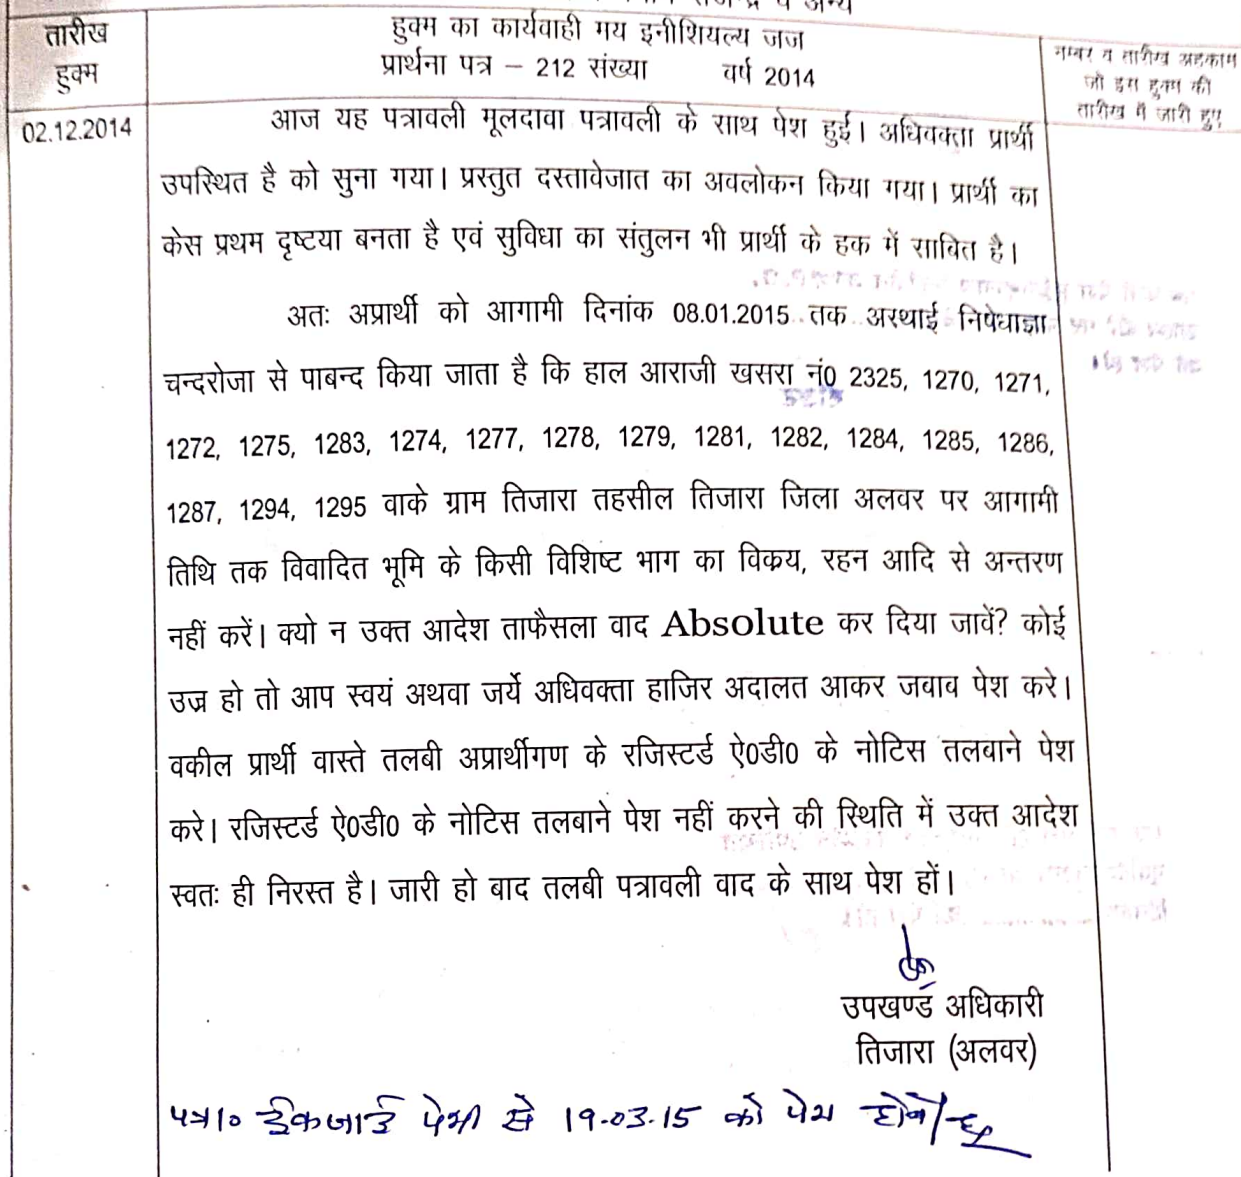 व अन्य
तारीख
हुक्म
हुक्म का कार्यवाही मय इनीशियल्य जज
प्रार्थना पत्र – 212 संख्या वर्ष 2014
नम्बर व तारीख अहकाम
जो इस हुक्म की
तारीख में जारी हुए
02.12.2014
आज यह पत्रावली मूलदावा पत्रावली के साथ पेश हुई। अधिवक्ता प्रार्थी
उपस्थित है को सुना गया। प्रस्तुत दस्तावेजात का अवलोकन किया गया। प्रार्थी का
केस प्रथम दृष्टया बनता है एवं सुविधा का संतुलन भी प्रार्थी के हक में साबित है।
अतः अप्रार्थी को आगामी दिनांक 08.01.2015 तक अस्थाई निषेधाज्ञा
चन्दरोजा से पाबन्द किया जाता है कि हाल आराजी खसरा नं0 2325, 1270, 1271,
1272, 1275, 1283, 1274, 1277, 1278, 1279, 1281, 1282, 1284, 1285, 1286,
1287, 1294, 1295 वाके ग्राम तिजारा तहसील तिजारा जिला अलवर पर आगामी
तिथि तक विवादित भूमि के किसी विशिष्ट भाग का विक्रय, रहन आदि से अन्तरण
नहीं करें। क्यो न उक्त आदेश ताफैसला वाद Absolute कर दिया जावें? कोई
उज्र हो तो आप स्वयं अथवा जर्ये अधिवक्ता हाजिर अदालत आकर जवाब पेश करे।
वकील प्रार्थी वास्ते तलबी अप्रार्थीगण के रजिस्टर्ड ऐ0डी0 के नोटिस तलबाने पेश
करे। रजिस्टर्ड ऐ0डी0 के नोटिस तलबाने पेश नहीं करने की स्थिति में उक्त आदेश
स्वतः ही निरस्त है। जारी हो बाद तलबी पत्रावली वाद के साथ पेश हों।
उपखण्ड अधिकारी
तिजारा (अलवर)
पत्रा० ईकजाई पेशी से 19-03-15 को पेश होवे।